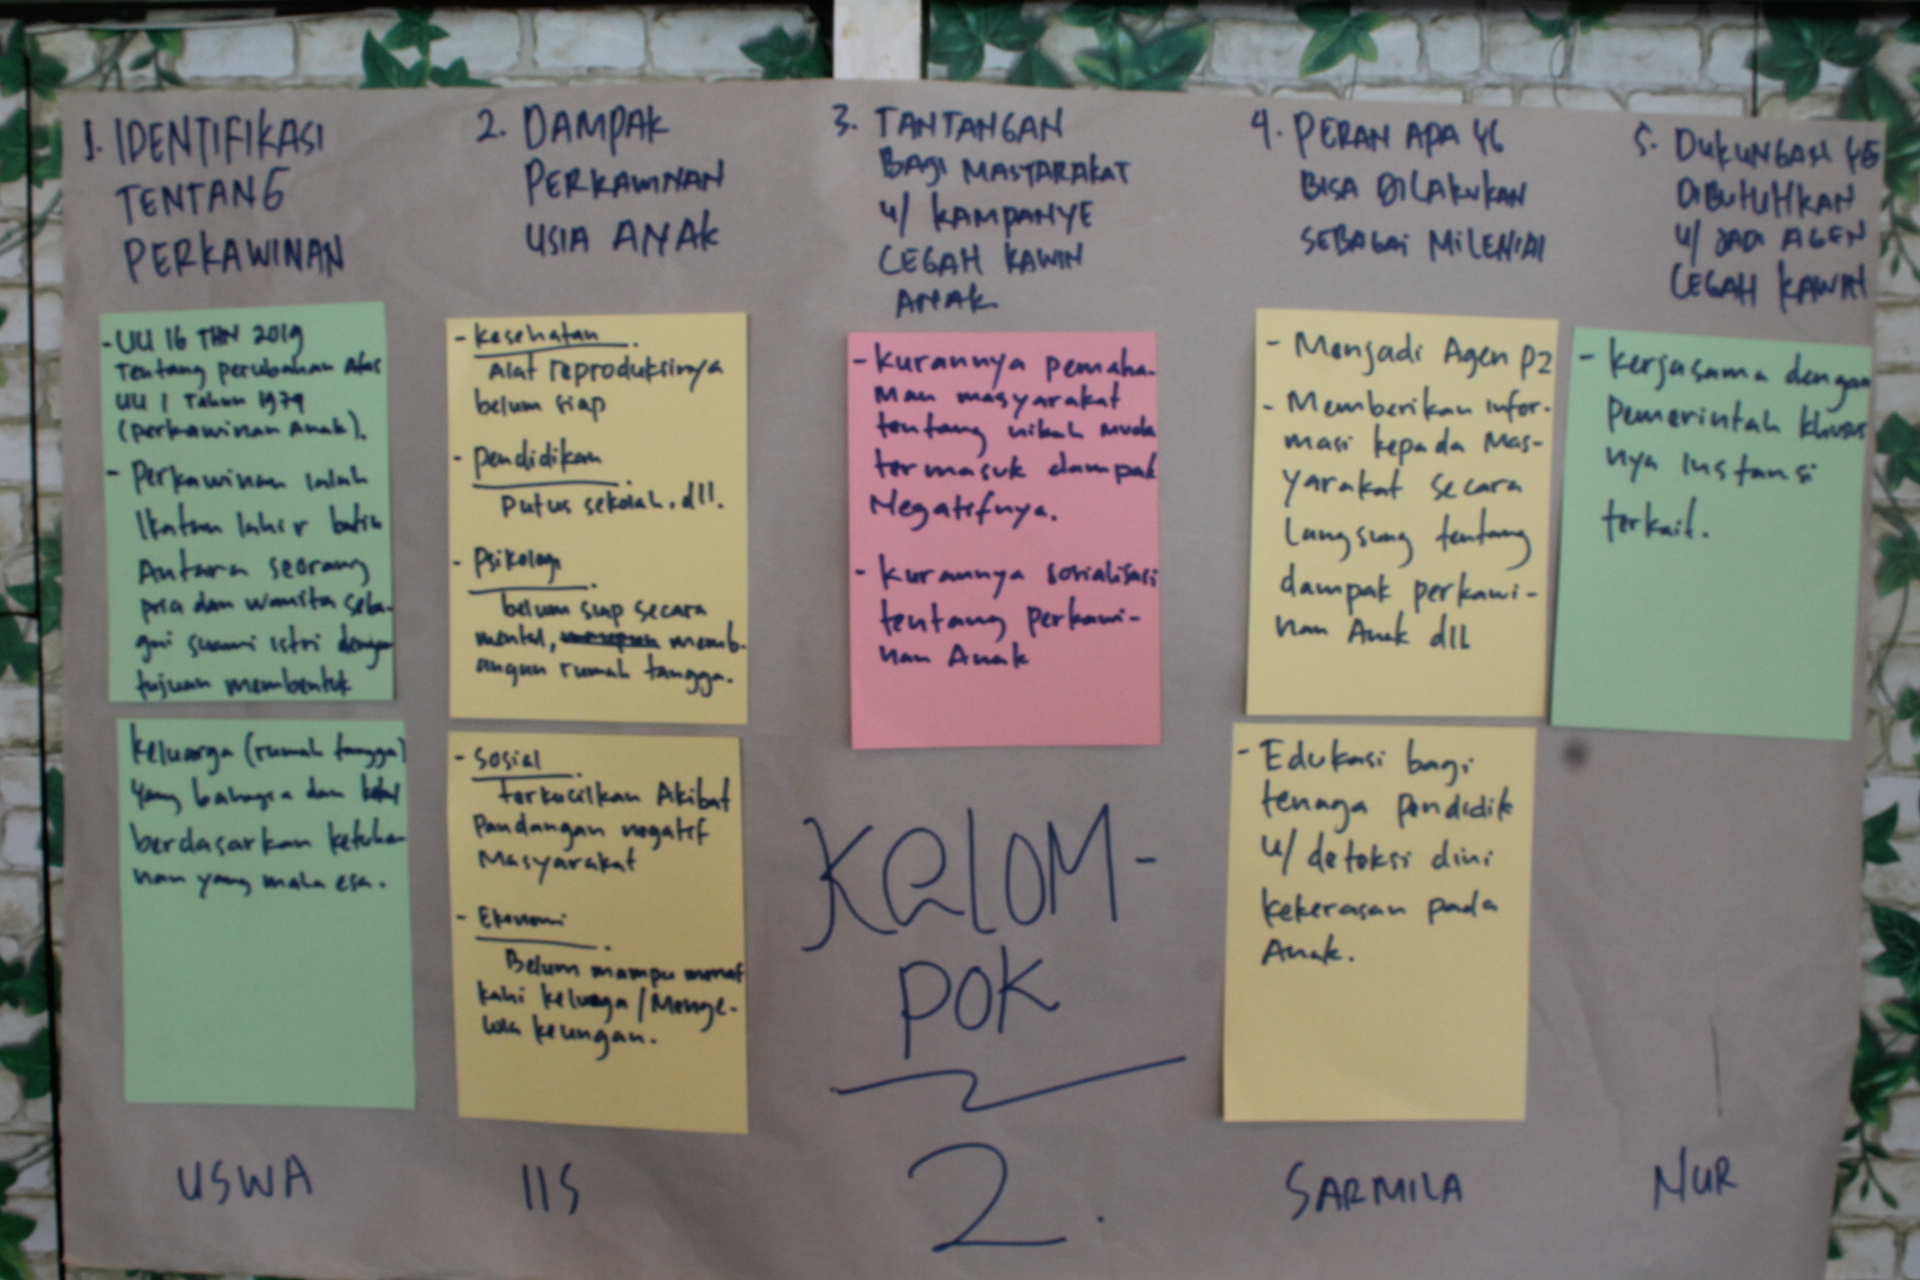 1. IDENTIFIKASI
TENTANG
PERKAWINAN
- UU 16 THN 2019
Tentang perubahan Atas
UU 1 Tahun 1974
(perkawinan Anak).
- Perkawinan ialah
Ikatan lahir batin
Antara seorang
pria dan wanita seba-
gai suami istri dengan
tujuan membentuk
keluarga (rumah tangga)
yang bahagia dan kekal
berdasarkan ketuha-
nan yang maha esa.
USWA
2. DAMPAK
PERKAWINAN
USIA ANAK
- Kesehatan.
Alat reproduksinya
belum siap
- Pendidikan.
Putus sekolah. dll.
- Psikologi.
belum siap secara
mental, memb-
angun rumah tangga.
- Sosial.
Terkucilkan Akibat
Pandangan negatif
Masyarakat
- Ekonomi.
Belum mampu menaf
kahi keluarga / Menge-
lola keungan.
IIS
3. TANTANGAN
BAGI MASYARAKAT
U/ KAMPANYE
CEGAH KAWIN
ANAK
- kurannya pemaha-
man masyarakat
tentang nikah muda
termasuk dampak
Negatifnya.
- kurannya sosialisasi
tentang perkawi-
nan Anak
KELOM-
POK
2.
4. PERAN APA YG
BISA DILAKUKAN
SEBAGAI MILENIAL
- Menjadi Agen P2
- Memberikan infor-
masi kepada Mas-
yarakat secara
Langsung tentang
dampak perkawi-
nan Anak dll
- Edukasi bagi
tenaga pendidik
u/ detoksi dini
kekerasan pada
Anak.
SARMILA
5. DUKUNGAN YG
DIBUTUHKAN
U/ JADI AGEN
CEGAH KAWIN
- kerjasama dengan
Pemerintah khusus
nya Instansi
terkait.
NUR